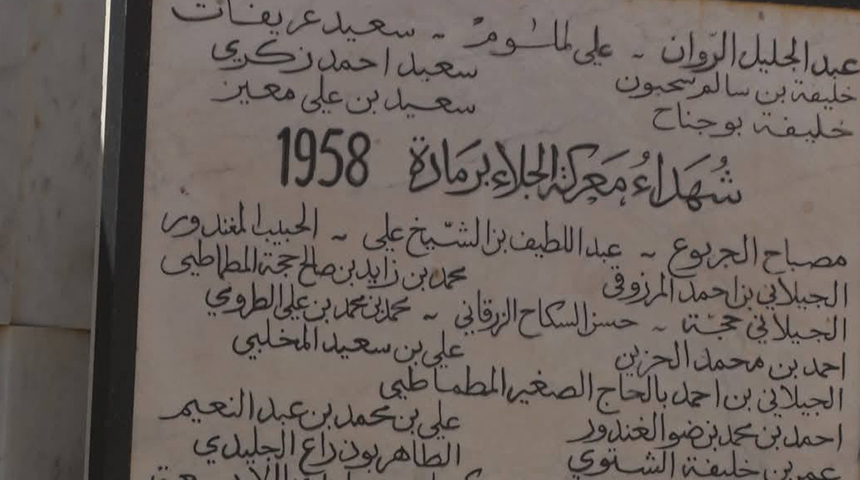 عبد الجليل الرّوان ~ علي لماسوم ~ سعيد عريفات
خليفة بن سالم سحبون سعيد احمد زكري
خليفة بوجناح سعيد بن علي معيز
شُهَدَاءُ مَعركة الجلاء برمَادة 1958
مصباح الجربوع ~ عبد اللطيف بن الشّيخ علي ~ الحبيب الغندور
الجيلاني بن احمد المرزوقي محمد بن زايد بن صالح حجة المطماطي
الجيلاني حجّة ~ حسن السكاح الزرقاني ~ محمد بن محمد بن علي الطرومي
احمد بن محمد الحزين علي بن سعيد المخلبي
الجيلاني بن احمد بالحاج الصغير المطماطي
احمد بن محمد بن ضو الغندور علي بن محمد بن عبد النعيم
عمر بن خليفة الشتوي الطاهر بوذراع الجليدي